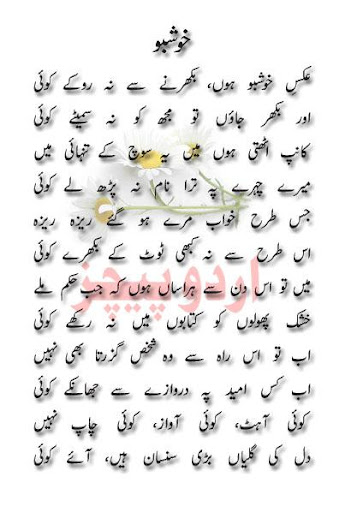 خوشبو
عکسِ خوشبو ہوں، بکھرنے سے نہ روکے کوئی
اور بکھر جاؤں تو مجھ کو نہ سمیٹے کوئی
کانپ اٹھتی ہوں میں یہ سوچ کے تنہائی میں
میرے چہرے پہ ترا نام نہ پڑھ لے کوئی
جس طرح خواب مرے ہو گئے ریزہ ریزہ
اس طرح سے نہ کبھی ٹوٹ کے بکھرے کوئی
میں تو اس دن سے ہراساں ہوں کہ جب حکم ملے
خشک پھولوں کو کتابوں میں نہ رکھے کوئی
اب تو اس راہ سے وہ شخص گزرتا بھی نہیں
اب کس امید پہ دروازے سے جھانکے کوئی
کوئی آہٹ، کوئی آواز، کوئی چاپ نہیں
دل کی گلیاں بڑی سنسان ہیں، آئے کوئی
اردو پیجز